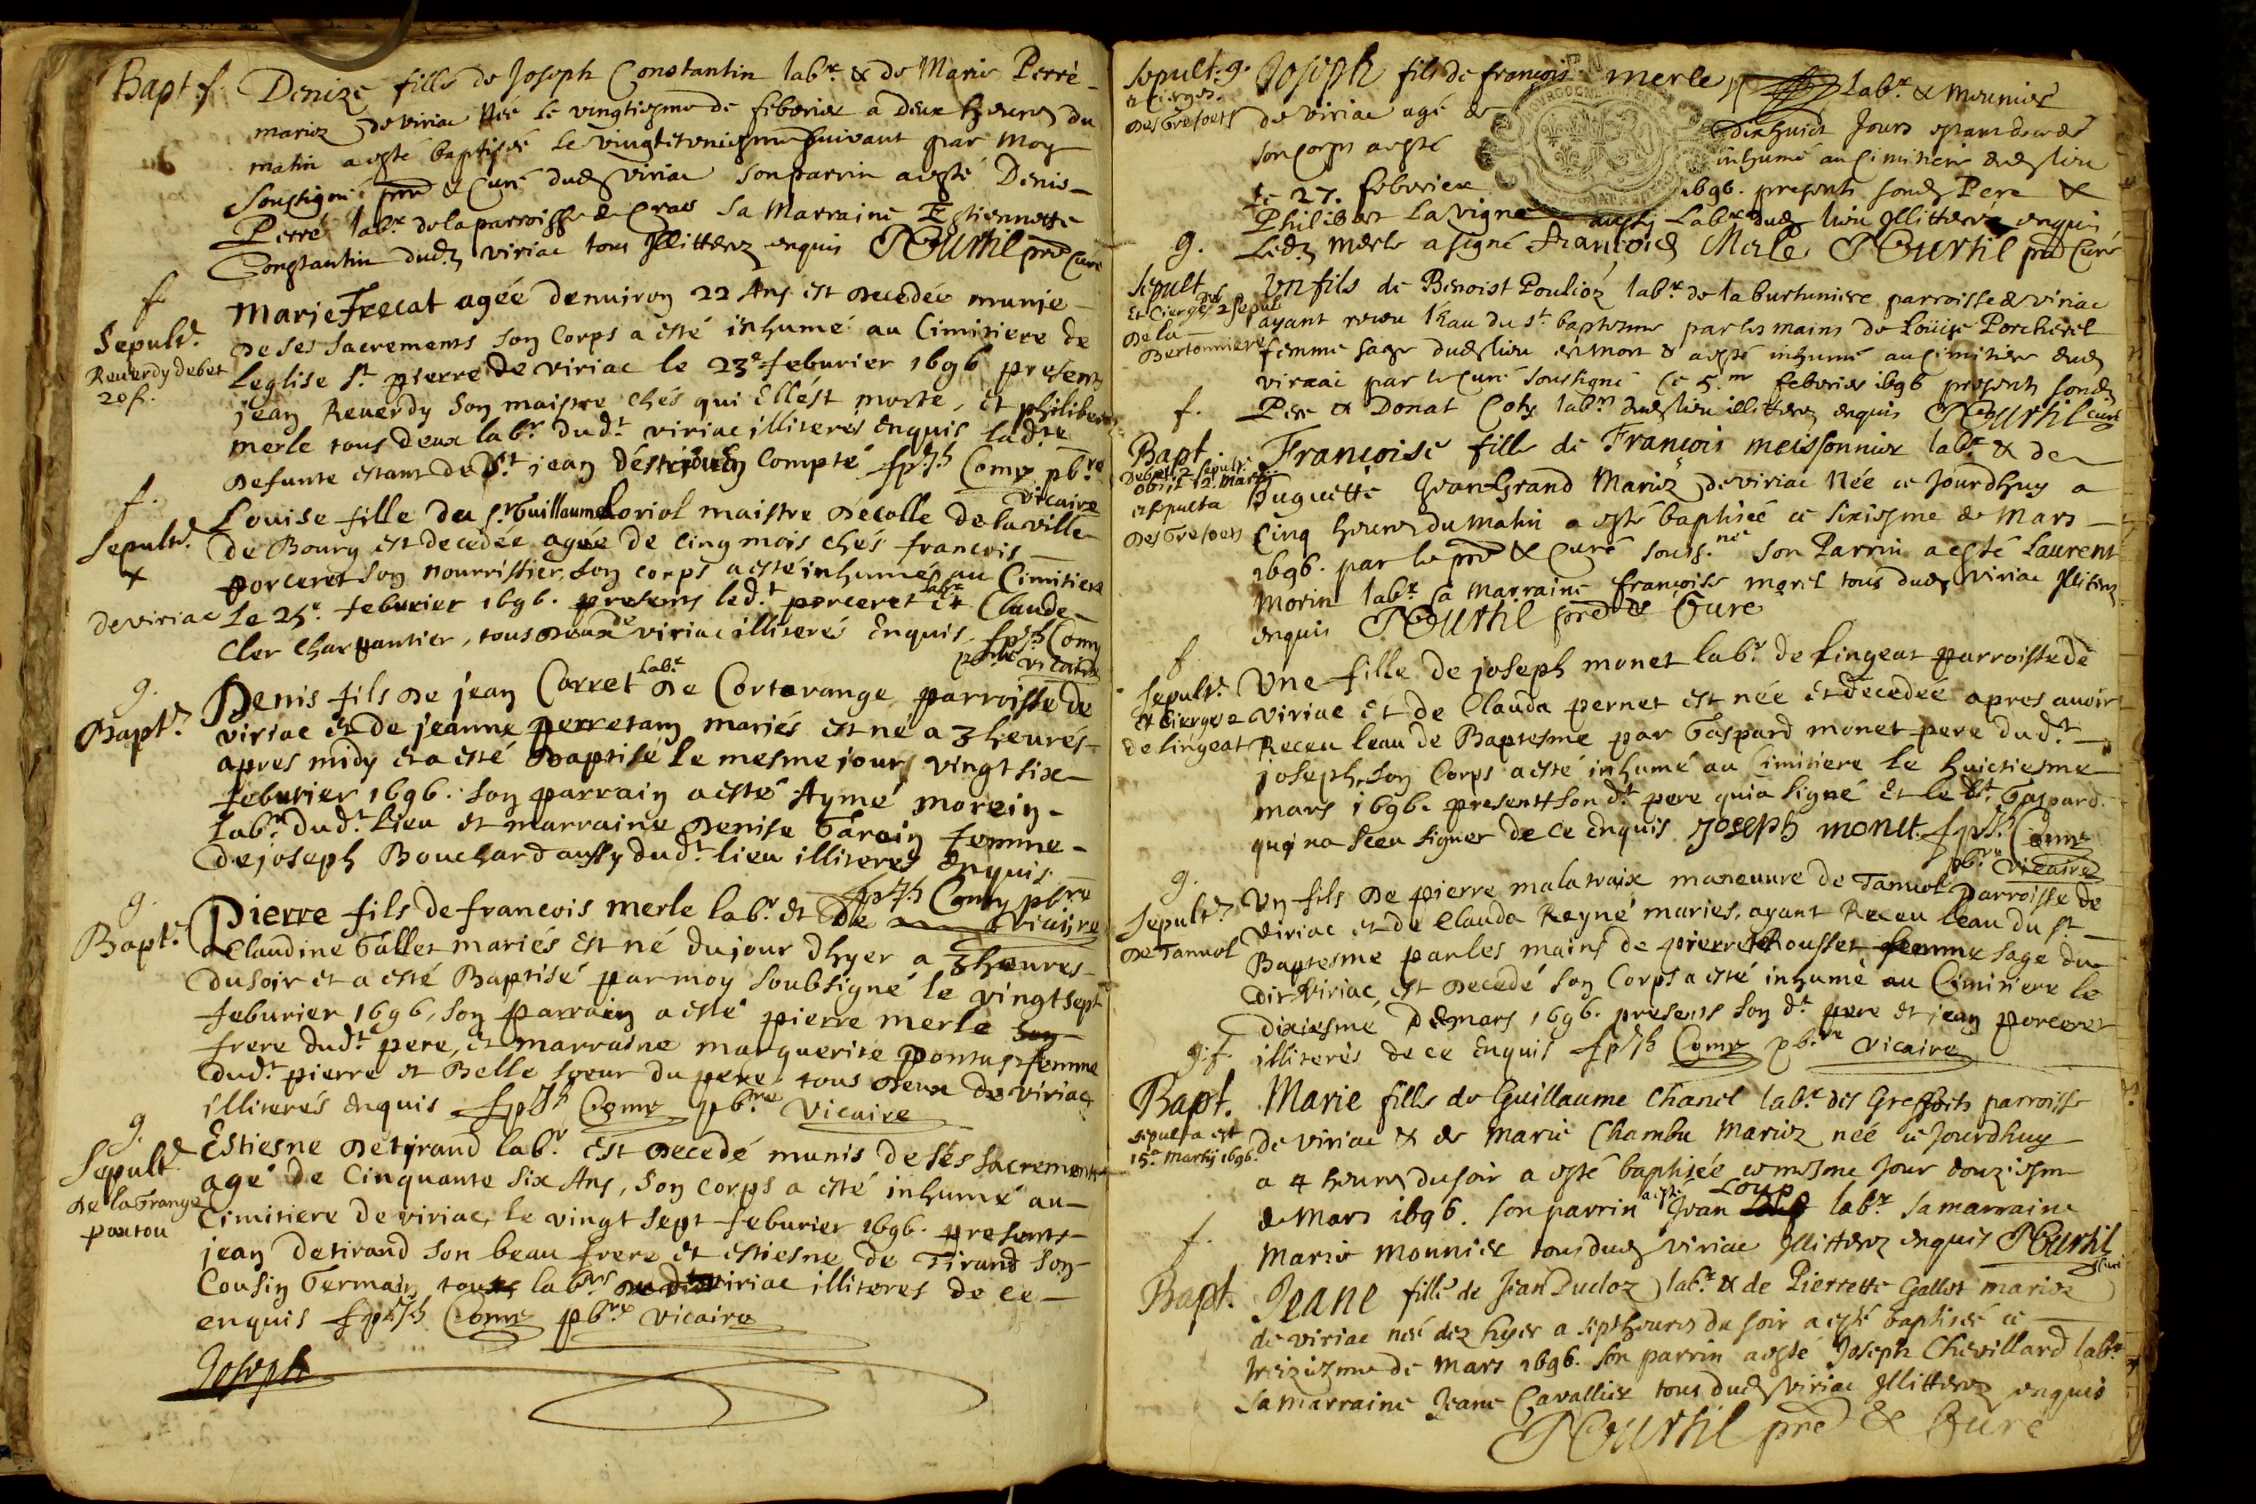 Bapt. f. Denize fille de Joseph Constantin labr. & de Marie Perré
mariez de viriac Née le vingtiesme de febvrier a deux heures du
matin a esté baptisée le vingtetuniesme suivant par moy
soussigné pre & Curé dud viriac son parrin a esté Denis
Perré labr. de la parroisse de Cras sa Marraine Estiennette
Constantin dud viriac tous Illitterez enquis pre Curé
f
Sepult.
Reuerdy debet
20 s.
Marie Frecat agée d'enuiron 22 Ans est decedée munie
de ses sacrements son Corps a esté inhumé au Cimitiere de
Leglise St. pierre de viriac le 23e feburier 1696 presents
jean Reuerdy son maistre chés qui Ellést morte, et philibert
merle tous deux labrs. dud.t viriac illiterés Enquis lad.te
defunte estant de St jean compté Comy pbre
vicaire
f.
Sepult.
+
de viriac
Louise fille du sr Guillaume Loriol maistre décolle de la ville
de Bourg est decedée agée de cinq mois chés francois
porceret son nourrissier, son corps a esté inhumé au Cimitiere
Le 25e feburier 1696. presents led.t porceret labr et Claude
Cler charpantier, tous deux de viriac illiterés Enquis Comy
pbre vicaire
g.
Bapt.
Denis fils de jean Corret labr. de Corterange parroisse de
viriac et de jeanne perretany mariés est né a 3 heures
apres midy et a esté Baptisé le mesme jour vingt six
feburier 1696. son parrain a esté Aymé morein
labr. dud.t lieu et marraine Denise Garoin femme
de joseph Bouchard aussy dud.t lieu illiteres Enquis
Comy pbre
vicaire
g.
Bapt.
Pierre fils de francois merle labr. et de
Claudine Gallet mariés Est né du jour dhyer a 3 heures
du soir et a esté Baptisé par moy soubsigné le vingt sept
feburier 1696, son parrain a esté pierre merle son
frere dud.t pere, et marraine marguerite pontus femme
dud.t pierre et Belle soeur du pere, tous deux de viriac
illiterés Enquis Comy pbre vicaire
g.
Sepult.
de la Grange
pantou
Estiesne detirand labr. Est decedé munis de ses sacrements
agé de Cinquante six Ans, son corps a esté inhumé au
Cimitiere de viriac, le vingt sept feburier 1696. presents
jean detirand son beau frere et estiesne de Tirand son
Cousin Germain, tous labrs de viriac illiteres de ce
enquis Comy pbre vicaire
Joseph
sepult. g.
2 Cierges.
Des Gresoets
Joseph fils de françois merle labr. & Meunier
de viriac agé de dixhuict Jours estant decedé
son corps a esté inhumé au Cimitiere dud lieu
Le 27. febvrier 1696. presents sond Pere &
Philibert Lavigne aussy Labr dud lieu Illitteré enquis
g.
Led Merle a signé françois Merle pre Curé
sepult
et Cierges 2 sepul
De la
Bertonniere
Un fils de Benoist Poulioz labr. de la burtuniere parroisse de viriac
ayant receu l'eau du st. baptesme par les mains de Loüise Porcheret
femme sage dud lieu est mort & a esté inhumé au cimitiere dud
viriac par le Curé soussigné Ce 5.me febvrier 1696 presents sond
f.
Pere & Donat Coty labrs dud lieu illitterez enquis Curé
Bapt.
Debet 2 sepult.
obiit 12. martij
et sepulta
Des Gresoets
Françoise fille de François meissonnier labr. & de
Huguette Jvan Grand Mariez de viriac Née ce Jourdhuy a
Cinq heures du matin a esté baptisée ce sixiesme de Mars
1696. par le pre & Curé souss.né son Parrin a esté Laurent
Morin labr. sa Marraine françoise morel tous dud viriac Illiterez
enquis pre & Curé
f
Sepult.
et Cierges 2
de lingeat
Une fille de joseph monet labr. de Lingeat parroisse de
viriac et de Clauda pernet est née et decedeé apres auoir
Receu leau de Baptesme par Gaspard monet pere dud.t
joseph, son Corps a esté inhumé au Cimitiere le huictiesme
mars 1696. present son d.t pere qui a signé et le d.t Gaspard
qui na sceu signer de ce Enquis Joseph monet Comy
pbre vicaire
g.
Sepult.
de Tannol
Un fils de pierre malatraix maneuure de Tannol parroisse de
viriac et de Clauda Reyné maries, ayant Receu leau du st
Baptesme par les mains de pierrete Rousset femme sage du
dit viriac, est decedé son Corps a esté inhumé au Cimitiere le
dixiesme de mars 1696. presents son d.t pere et jean porceret
g. f.
illiterés de ce Enquis Comy pbre vicaire
Bapt.
sepulta est
15.a martij 1696.
Marie fille de Guillaume Chanel labr. des Gressoets parroisse
de viriac & de Marie Chambu Mariez née ce Jourdhuy
a 4 heures du soir a esté baptisée ce mesme Jour douziesme
de Mars 1696. son parrin a esté Jvan Loup labr. sa marraine
f.
Marie Mounier tous dud viriac Illitterez enquis
Curé
Bapt.
Jeane fille de Jean Ducloz labr. & de Pierrette Gallet mariez
de viriac neé dez hyer a sept heures du soir a esté baptisée ce
treiziesme de Mars 1696. son parrin a esté Joseph Chevillard labr.
sa marraine Jeane Cavallier tous dud viriac Illitterez enquis
pre & Curé